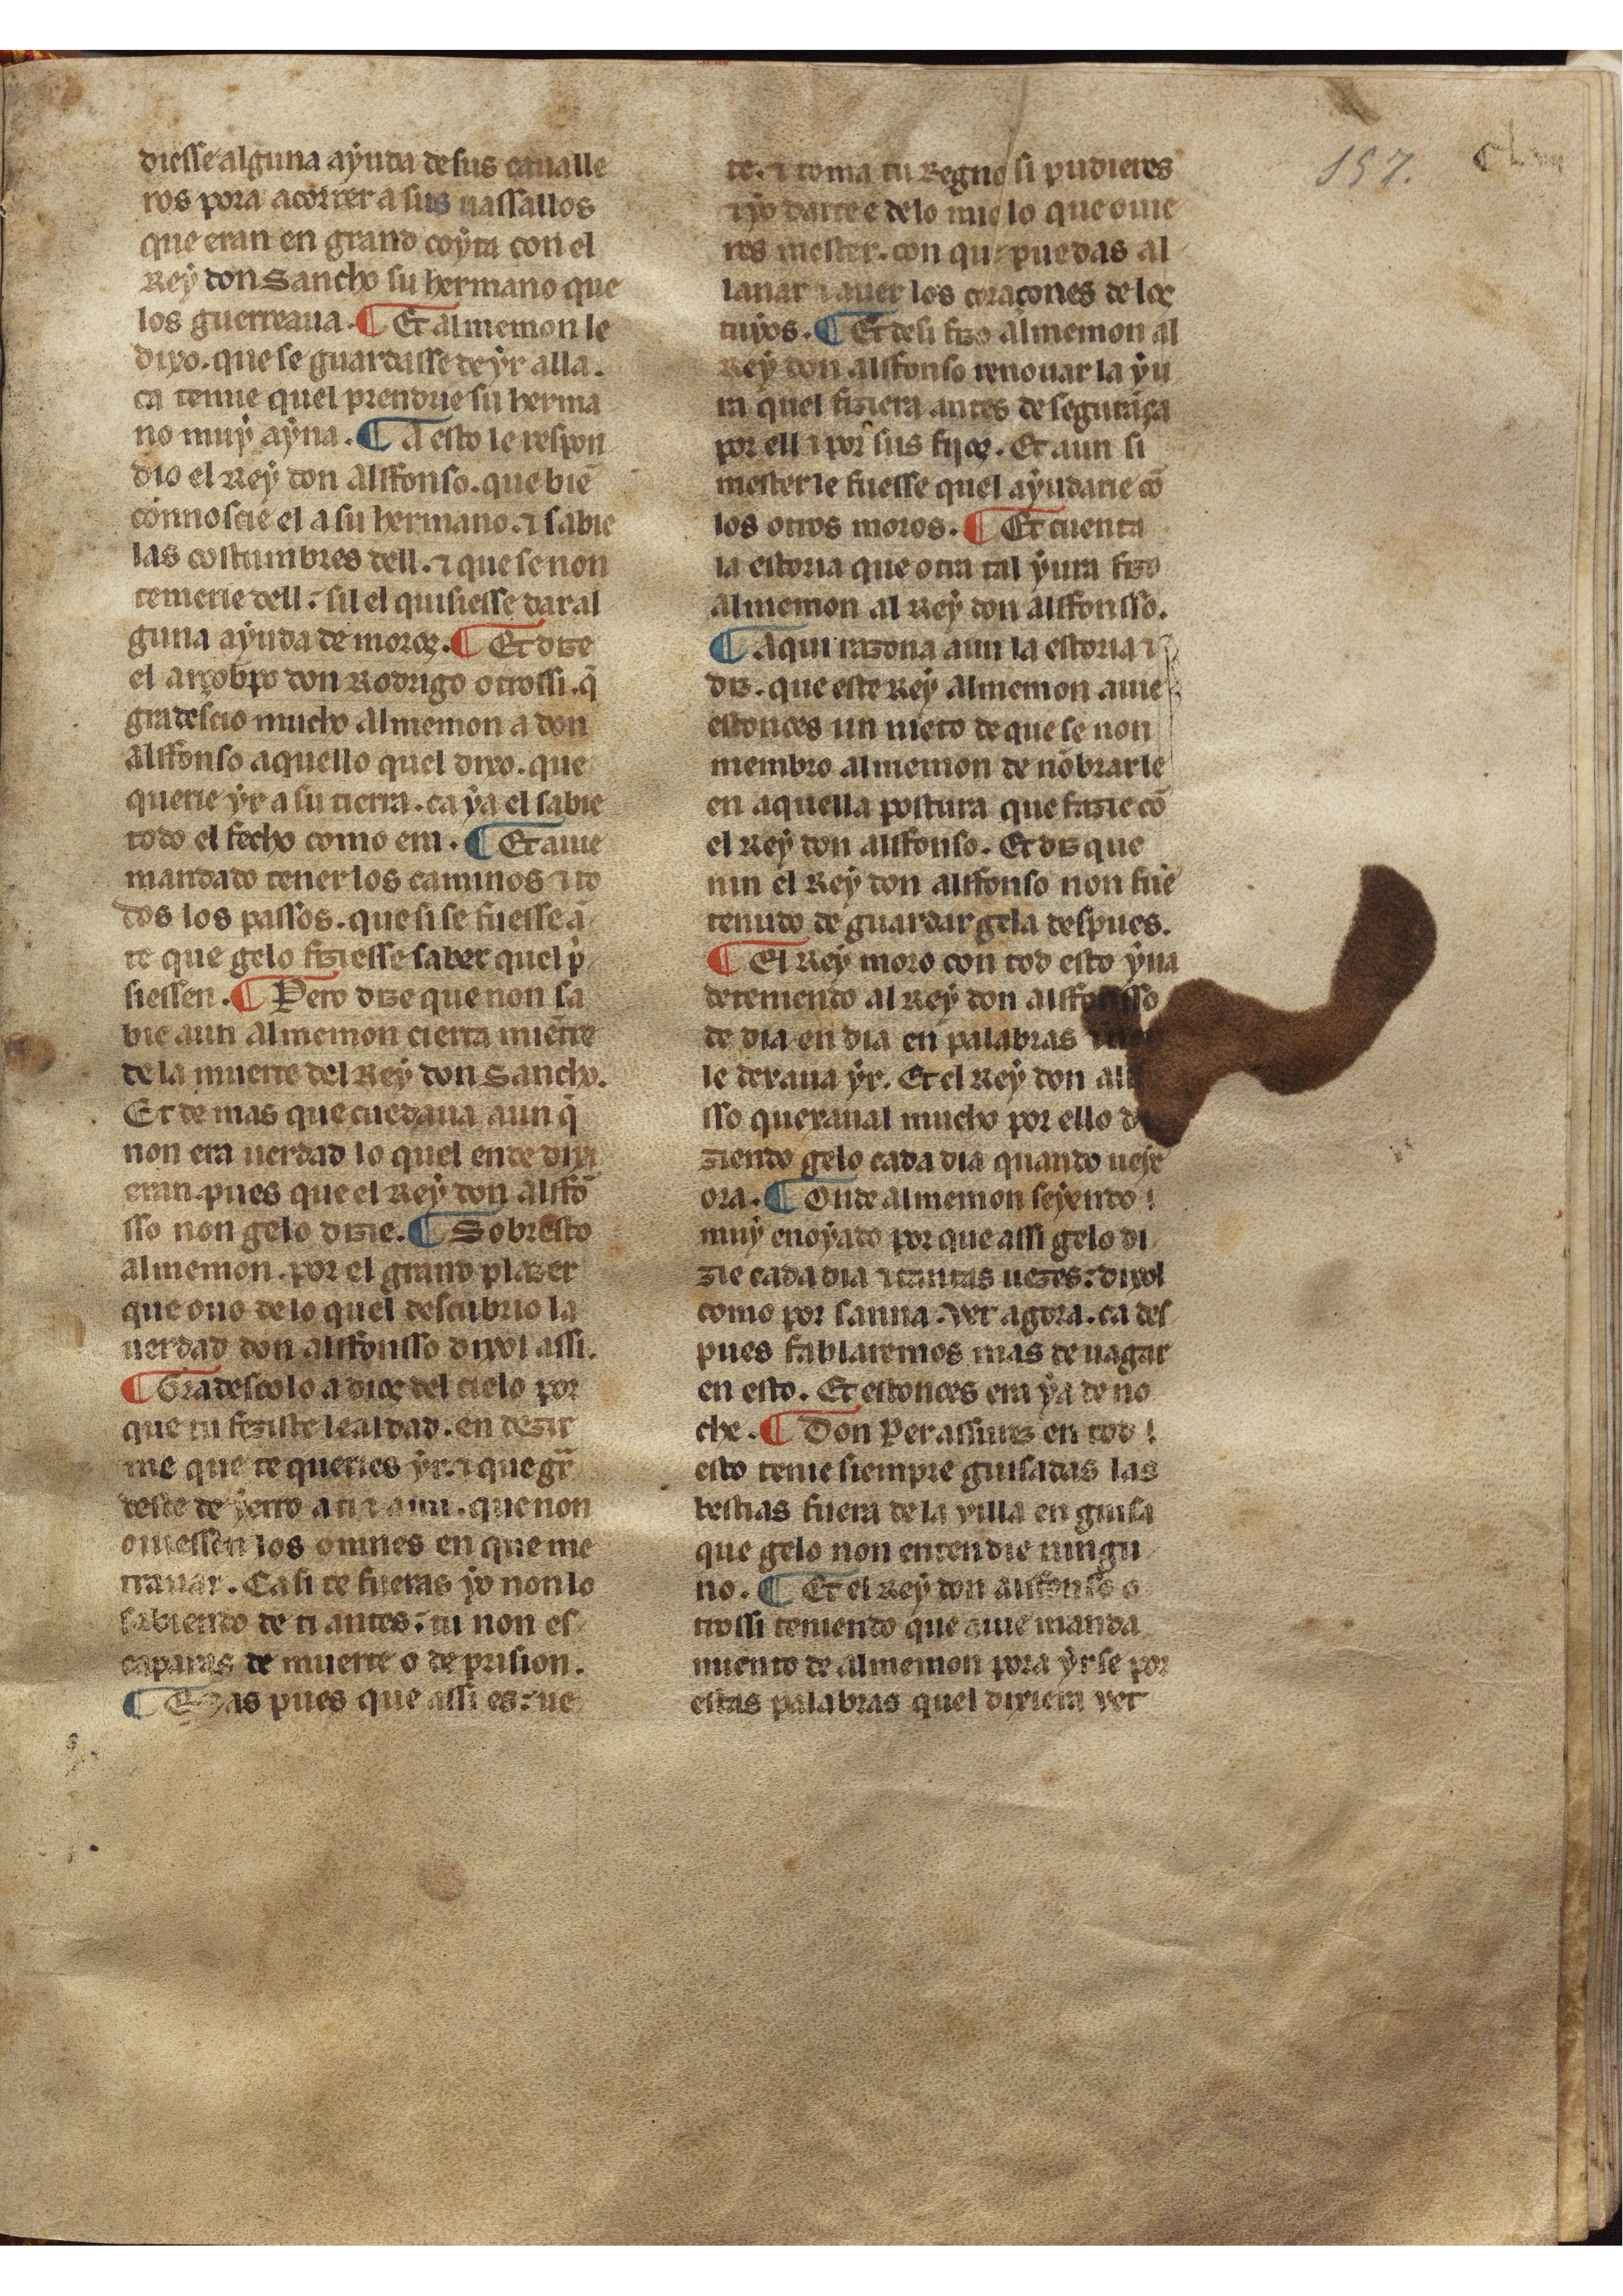 157.
diesse alguna ayuda de sus caualle
ros pora acorrer a sus uassallos
que eran en grand coyta con el
Rey don Sancho su hermano que
los guerreaua. ¶ Et almemon le
dixo. que se guardasse de yr alla.
ca temie quel prendrie su herma
no muy ayna. ¶ A esto le respon
dio el Rey don alffonso. que biẽ
connoscie el a su hermano. ⁊ sabie
las costumbres dell. ⁊ que se non
temerie dell. sil el quisiesse dar al
guna ayuda de moros. ¶ Et dize
el arçobpo don Rodrigo otrossi. q̃
gradescio mucho almemon a don
alffonso aquello quel dixo. que
querie yr a su tierra. ca ya el sabie
todo el fecho como era. ¶ Et auie
mandado tener los caminos ⁊ to
dos los passos. que si se fuesse ã
te que gelo fiziesse saber quel p̃
siessen. ¶ Pero dize que non sa
bie aun almemon cierta miẽtre
de la muerte del Rey don Sancho.
Et de mas que cuedaua aun q̃
non era uerdad lo quel ende dixi
eran. pues que el Rey don alffõ
sso non gelo dizie. ¶ Sobresto
almemon. por el grand plazer
que ouo de lo quel descubrio la
uerdad don alffonsso dixol assi.
¶ Gradescolo a dios del cielo por
que tu feziste lealdad. en dezir
me que te queries yr. ⁊ que gr̃
deste de yerro a ti ⁊ a mi. que non
ouiessen los omnes en que me
trauar. Ca si te fueras yo non lo
sabiendo de ti antes. tu non es
caparas de muerte o de prision.
¶ Mas pues que assi es. ue
te. ⁊ toma tu Regno si pudieres
⁊ yo darte e de lo mio lo que ouie
res mester. con que puedas al
lanar ⁊ auer los coraçones de los
tuyos. ¶ Et desi fizo almemon al
Rey don alffonso renouar la yu
ra quel fiziera antes de segurãça
por ell ⁊ por sus fijos. Et aun si
mester le fuesse quel ayudarie cõ
los otros moros. ¶ Et cuenta
la estoria que otra tal yura fizo
almemon al Rey don alffonsso.
¶ Aqui razona aun la estoria ⁊
diz. que este Rey almemon auie
estonces un nieto de que se non
membro almemon de nõbrarle
en aquella postura que fazie cõ
el Rey don alffonso. Et diz que
nin el Rey don alffonso non fue
tenudo de guardar gela despues.
¶ El Rey moro con tod esto yua
deteniendo al Rey don alffonsso
de dia en dia en palabras ⁊ non
le dexaua yr. Et el Rey don alffo
sso quexaual mucho por ello di
ziendo gelo cada dia quando ueye
ora. ¶ Onde almemon seyendo
muy enoyado por que assi gelo di
zie cada dia ⁊ tantas uezes. dixol
como por sanna. vet agora. ca des
pues fablaremos mas de uagar
en esto. Et estonces era ya de no
che. ¶ Don Perassurez en tod
esto tenie siempre guisadas las
bestias fuera de la villa en guisa
que gelo non entendie ningu
no. ¶ Et el Rey don alffonso o
trossi teniendo que auie manda
miento de almemon pora yrse por
estas palabras quel dixiera vet